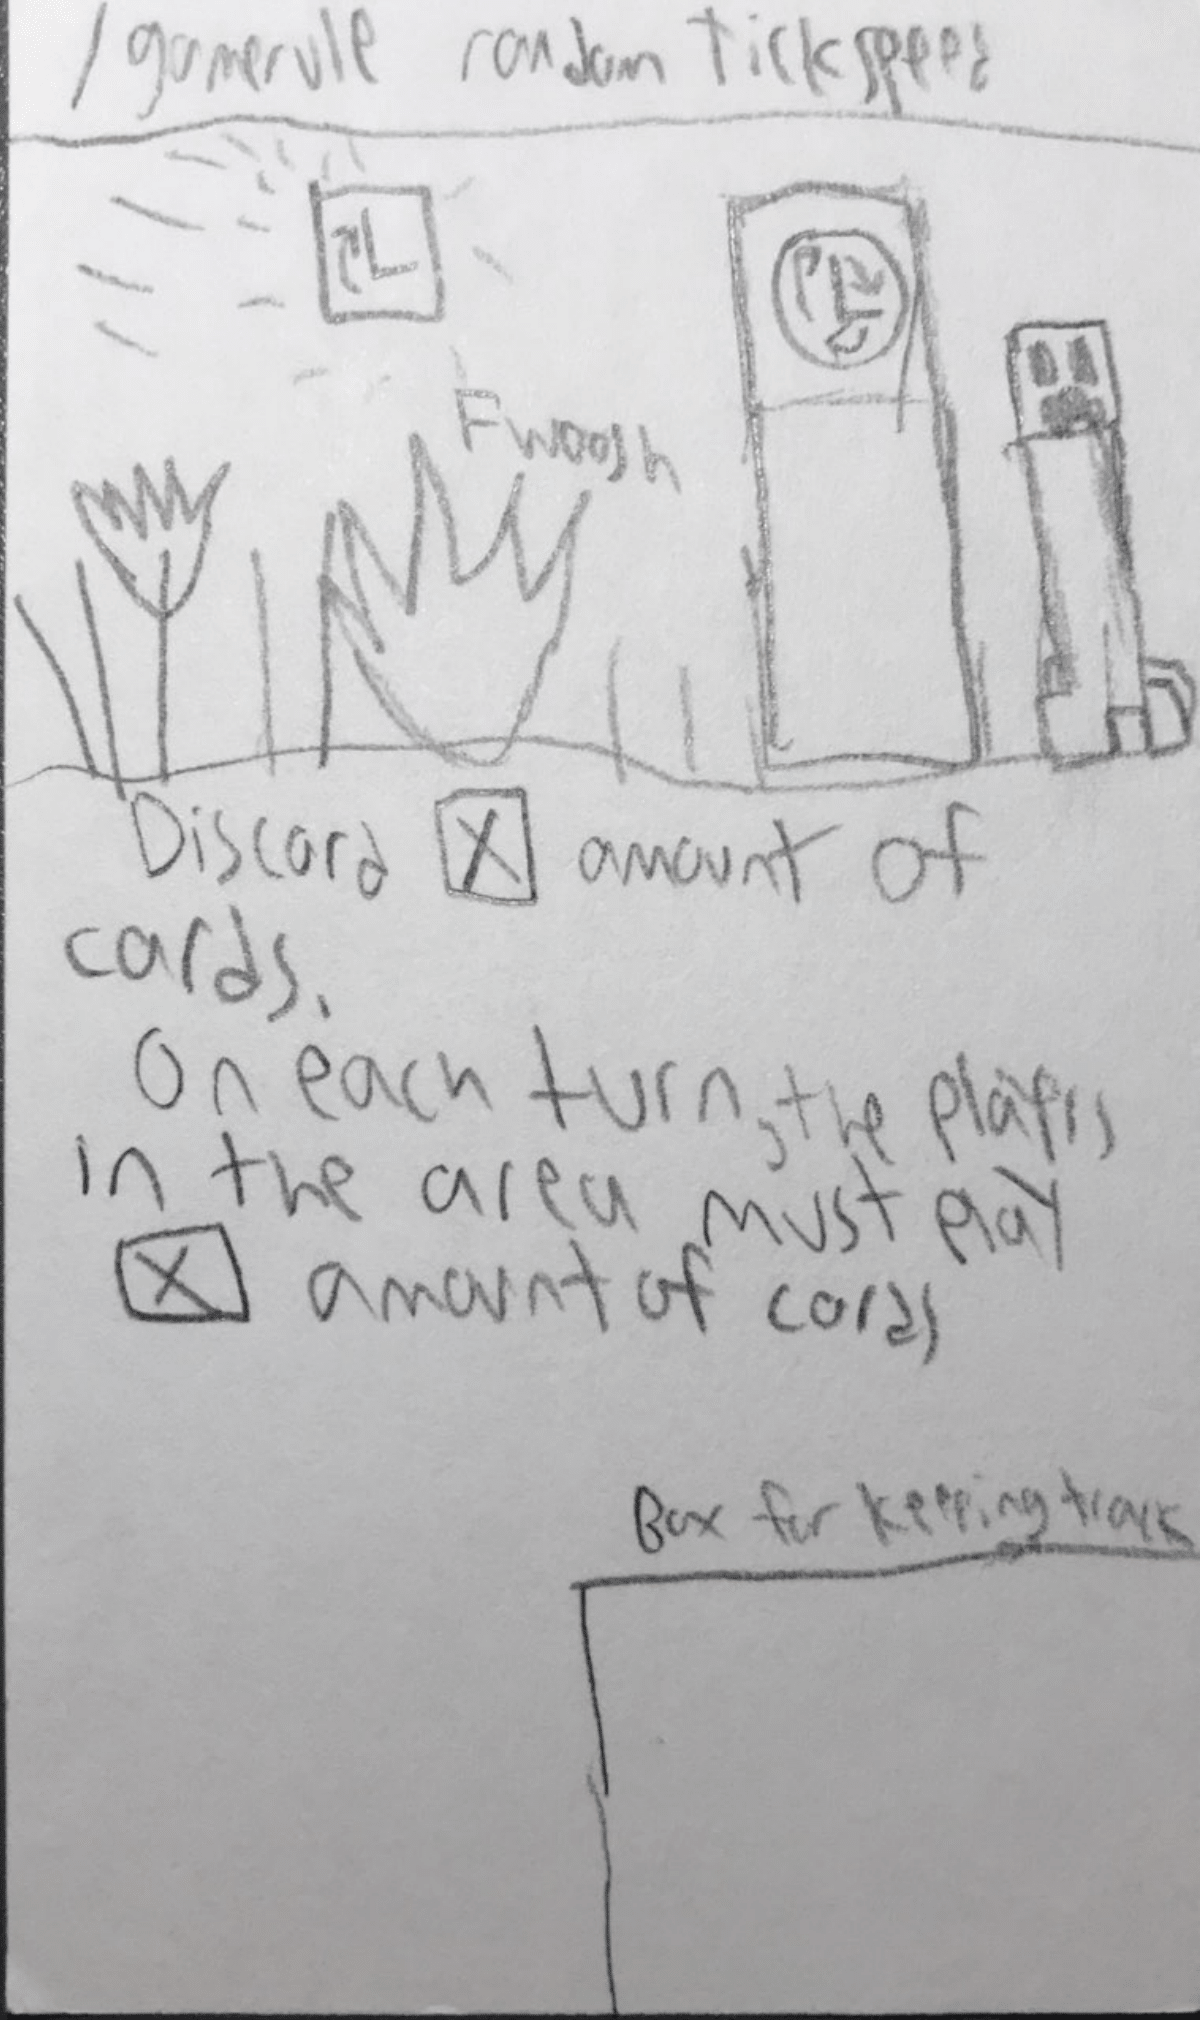 /gamerule random Tickspeed
Fwoosh
Discard X amount of
cards.
On each turn, the players
in the area must play
X amount of cards
Box for keeping track